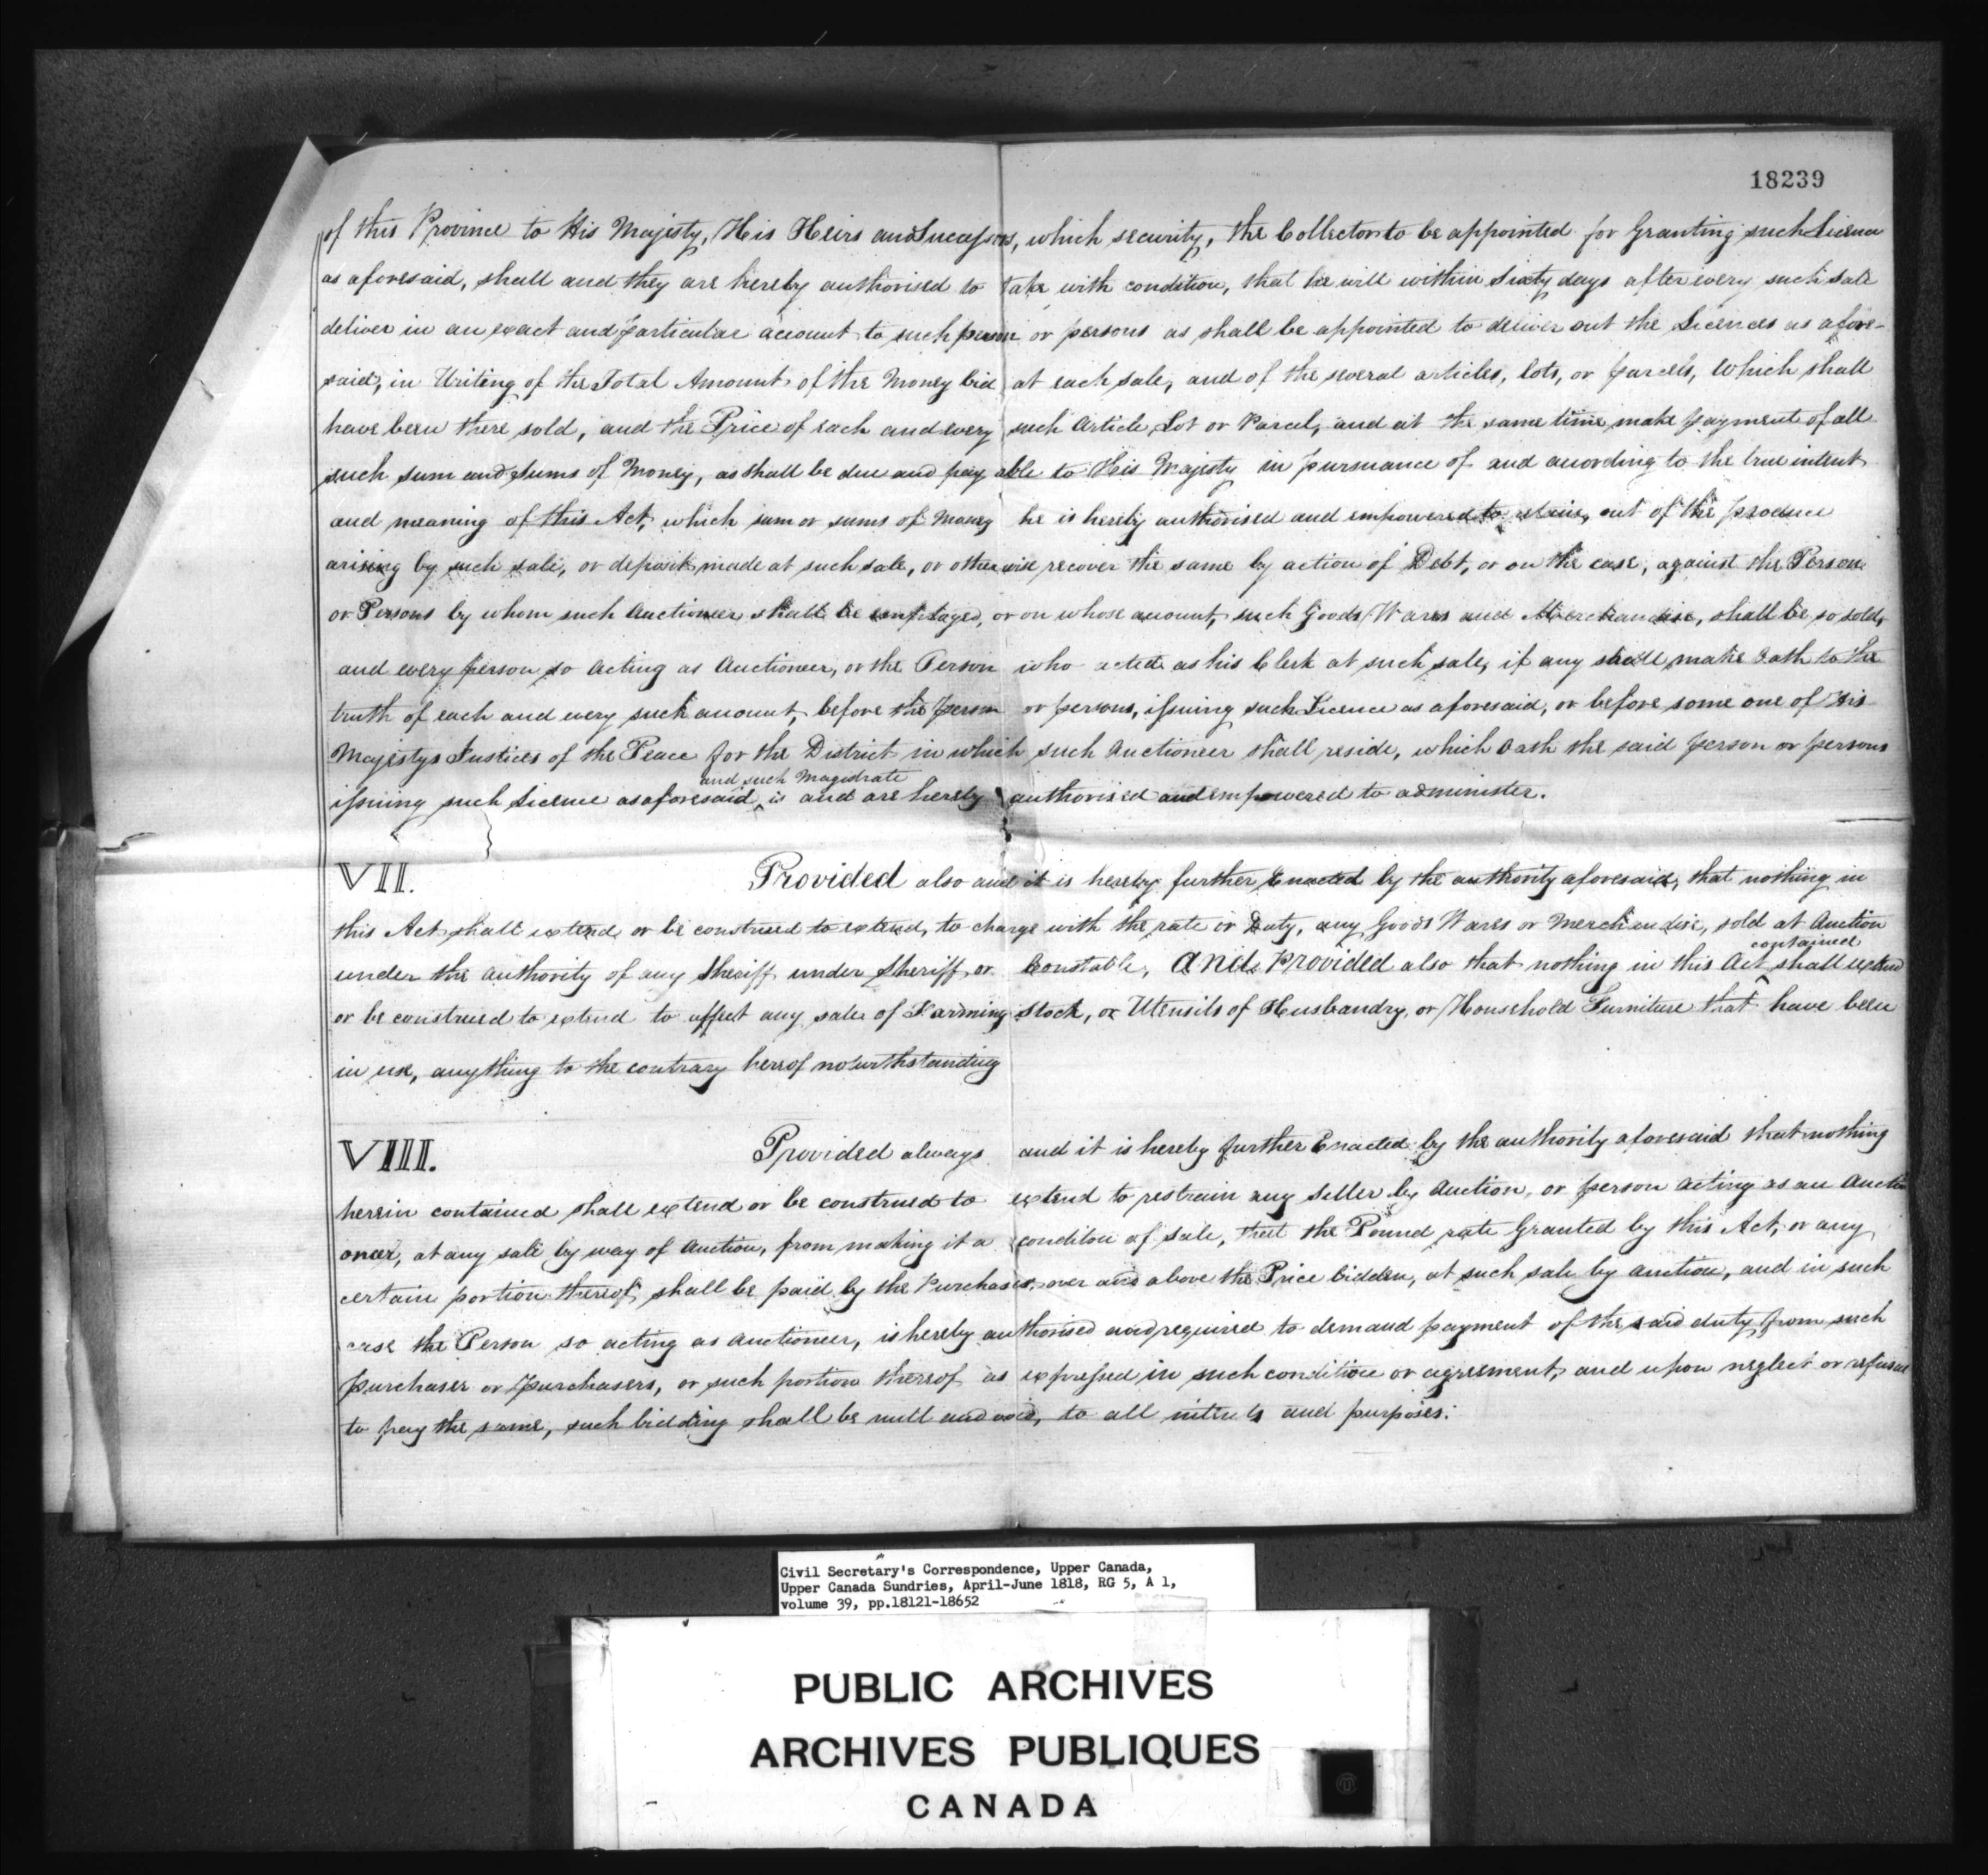 18239
of this Province to His Majesty, His Heirs and Successors, which security, the Collector to be appointed for Granting such Licence
as aforesaid, shall and they are hereby authorised to take with condition, that he will within Sixty days after every such sale
deliver in an exact and particular account to such person or persons as shall be appointed to deliver out the Licences as afore-
said, in Writing of the Total Amount of the Money bid at each sale, and of the several articles, lots, or parcels, which shall
have been there sold, and the Price of each and every such Article, Lot or Parcel, and at the same time make payment of all
such sum and Sums of Money, as shall be due and payable to His Majesty in pursuance of and according to the true intent
and meaning of this Act, which sum or sums of Money he is hereby authorised and empowered to retain, out of the produce
arising by such sale, or deposit made at such sale, or otherwise recover the same by action of Debt, or on the case, against the Person
or Persons by whom such Auctioneer shall be employed, or on whose account, such Goods Wares and Merchandise, shall be so sold,
and every person so acting as Auctioneer, or the Person who acted as his Clerk at such sale, if any shall make Oath to the
truth of each and every such account, before the person or persons, issuing such Licence as aforesaid, or before some one of His
Majestys Justices of the Peace for the District in which such Auctioneer shall reside, which Oath the said person or persons
and such Magistrate
issuing such Licence as aforesaid, is and are hereby authorised and empowered to administer.
VII. Provided also and it is hereby further Enacted by the authority aforesaid, that nothing in
this Act shall extend or be construed to extend, to charge with the rate or Duty, any Goods Wares or Merchandise, sold at Auction
contained
under the authority of any Sheriff under Sheriff, or Constable, And Provided also that nothing in this Act shall extend
or be construed to extend to affect any sale of Farming Stock, or Utensils of Husbandry, or Household Furniture that have been
in use, any thing to the contrary hereof notwithstanding
VIII. Provided always and it is hereby further Enacted by the authority aforesaid that nothing
herein contained shall extend or be construed to extend to restrain any Seller by Auction, or person acting as an Aucti
oneer, at any sale by way of Auction, from making it a condition of sale, that the Pound rate Granted by this Act, or any
certain portion thereof, shall be paid by the Purchaser, over and above the Price bidden, at such sale by auction, and in such
case the Person so acting as Auctioneer, is hereby authorised and required to demand payment of the said duty from such
purchaser or purchasers, or such portion thereof as expressed in such condition or agreement, and upon neglect or refusal
to pay the same, such bidding shall be null and void, to all intents and purposes.
Civil Secretary's Correspondence, Upper Canada,
Upper Canada Sundries, April-June 1818, RG 5, A 1,
volume 39, pp.18121-18652
PUBLIC ARCHIVES
ARCHIVES PUBLIQUES
CANADA